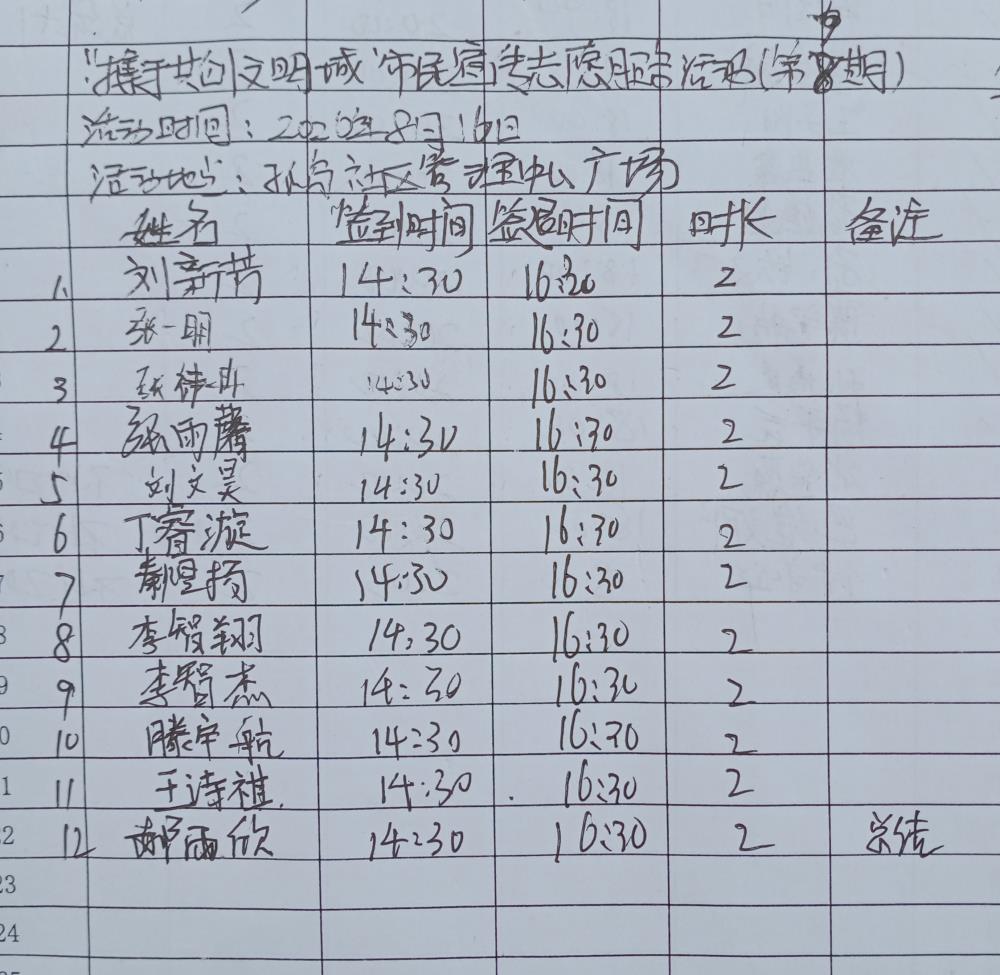 "携手共创文明城"市民宣传志愿服务活动(第9期)
活动时间：2020年8月16日
活动地点：孤岛社区管理中心广场
姓名 签到时间 签退时间 时长 备注
1. 刘新芳 14:30 16:30 2
2 张一明 14:30 16:30 2
3 14:30 16:30 2
4 张雨馨 14:30 16:30 2
5 刘文昊 14:30 16:30 2
6 丁睿漩 14:30 16:30 2
7 秦煜扬 14:30 16:30 2
8 李智翔 14:30 16:30 2
9 李智杰 14:30 16:30 2
10 滕宇航 14:30 16:30 2
11 王诗祺 14:30 16:30 2
12 郝雨欣 14:30 16:30 2 总结
23
24